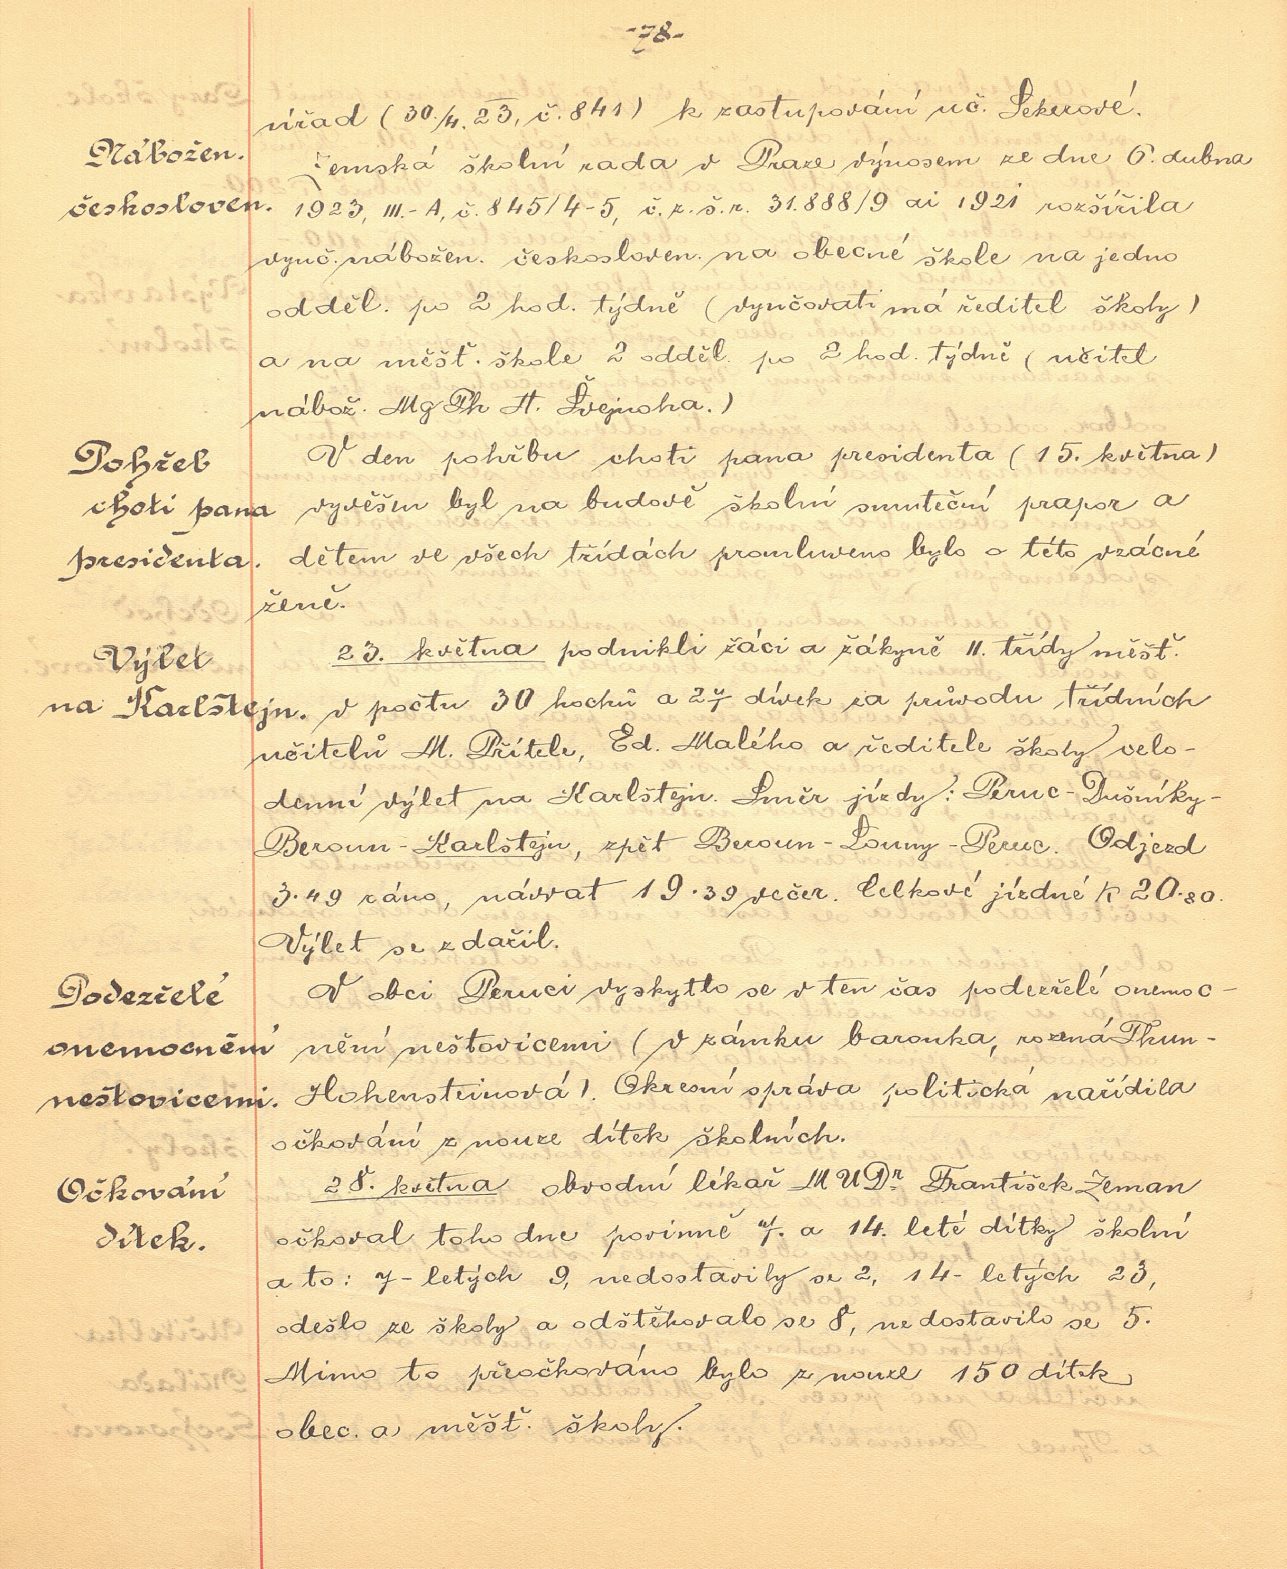 -78-
úřad (30./4. 23, č. 841) k zastupování uč. Sekerové.
Nábožen.
Zemská školní rada v Praze výnosem ze dne 6. dubna
českosloven.
1923, III.-A, č. 845/4-5, č. z. š. r. 31.888/9 ai 1921 rozšířila
vyuč. nábožen. českosloven. na obecné škole na jedno
odděl. po 2 hod. týdně (vyučovati má ředitel školy)
a na měšť. škole 2 odděl. po 2 hod. týdně (učitel
nábož. Mg Ph A. Švejnoha.)
Pohřeb
V den pohřbu choti pana presidenta (15. května)
choti pana
vyvěšen byl na budově školní smuteční prapor a
presidenta.
dětem ve všech třídách promluveno bylo o této vzácné
ženě.
Výlet
23. května podnikli žáci a žákyně II. třídy měšť.
na Karlštejn.
v počtu 30 hochů a 27 dívek za průvodu třídních
učitelů M. Přítele, Ed. Malého a ředitele školy celo-
denní výlet na Karlštejn. Směr jízdy: Peruc-Dušníky-
Beroun-Karlštejn, zpět Beroun-Louny-Peruc. Odjezd
3.49 ráno, návrat 19.39 večer. Celkové jízdné K 20.80.
Výlet se zdařil.
Podezřelé
V obci Peruci vyskytlo se v ten čas podezřelé onemoc-
onemocnění
nění neštovicemi (v zámku baronka, rozená Thun-
neštovicemi.
Hohensteinová). Okresní správa politická nařídila
očkování z nouze dítek školních.
Očkování
28. května obvodní lékař MUDr. František Zeman
dítek.
očkoval toho dne povinně 7. a 14. leté dítky školní
a to: 7-letých 9, nedostavily se 2, 14-letých 23,
odešlo ze školy a odstěhovalo se 8, nedostavilo se 5.
Mimo to přeočkováno bylo z nouze 150 dítek
obec. a měšť. školy.